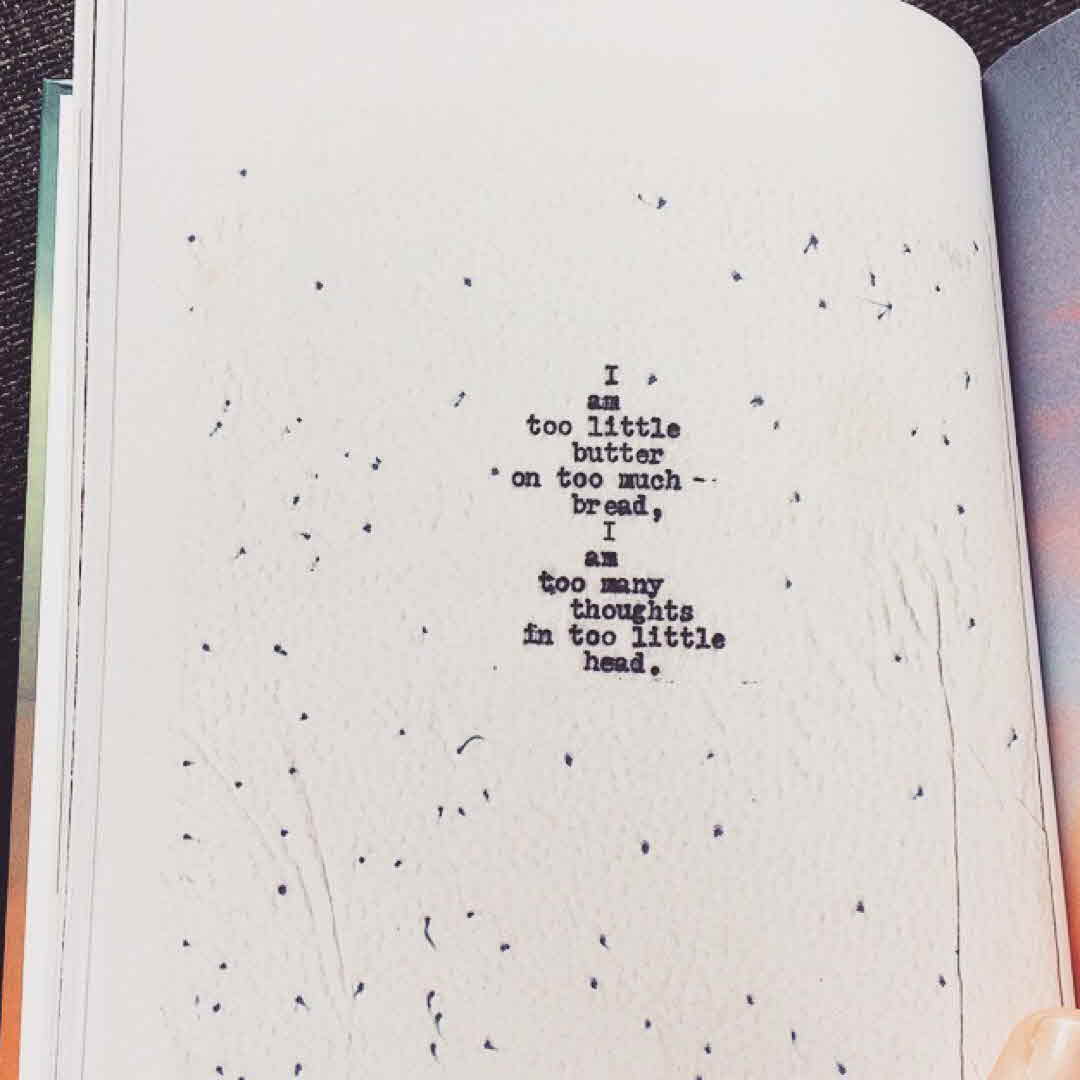 I
am
too little
butter
on too much -
bread,
I
am
too many
thoughts
in too little
head.